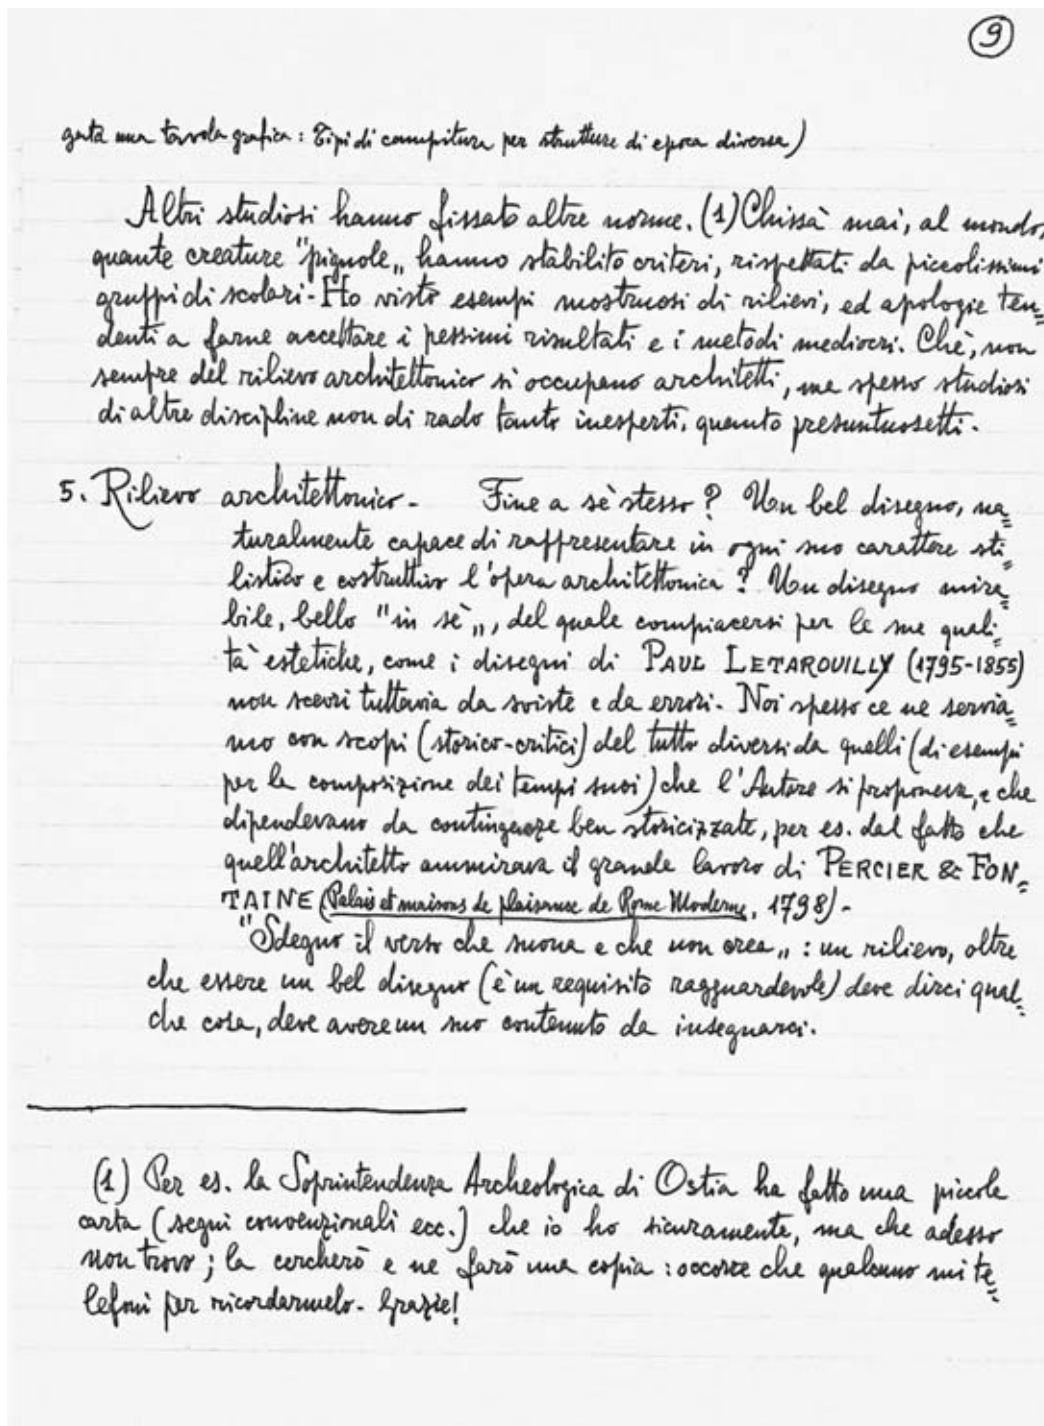 9
gata una tavola grafica: Tipi di campitura per strutture di epoca diversa)
Altri studiosi hanno fissato altre norme. (1) Chissà mai, al mondo,
quante creature "pignole„ hanno stabilito criteri, rispettati da piccolissimi
gruppi di scolari - Ho visto esempi mostruosi di rilievi, ed apologie ten=
denti a farne accettare i pessimi risultati e i metodi mediocri. Chè, non
sempre del rilievo architettonico si occupano architetti, ma spesso studiosi
di altre discipline non di rado tanto inesperti, quanto presuntuosetti -
5. Rilievo architettonico - Fine a sè stesso? Un bel disegno, na=
turalmente capace di raffresentare in ogni suo carattere sti=
listico e costruttivo l'opera architettonica? Un disegno mira=
bile, bello "in sè„, del quale compiacersi per le sue quali=
tà estetiche, come i disegni di PAUL LETAROUILLY (1795-1855)
non scevri tuttavia da sviste e da errori - Noi spesso ce ne servia=
mo con scopi (storico-critici) del tutto diversi da quelli (di esempi
per la composizione dei tempi suoi) che l'Autore si proponeva, e che
dipendevano da contingenze ben storicizzate, per es. dal fatto che
quell'architetto ammirava il grande lavoro di PERCIER & FON=
TAINE (Palais et maisons de plaisance de Rome Moderne, 1798) -
"Sdegno il verso che suona e che non crea„ : un rilievo, oltre
che essere un bel disegno (è un requisito ragguardevole) deve dirci qual=
che cosa, deve avere un suo contenuto da insegnarci.
(1) Per es. la Soprintendenza Archeologica di Ostia ha fatto una piccola
carta (segni convenzionali ecc.) che io ho sicuramente, ma che adesso
non trovo; la cercherò e ne farò una copia: occorre che qualcuno mi te=
lefoni per ricordarmelo - Grazie!